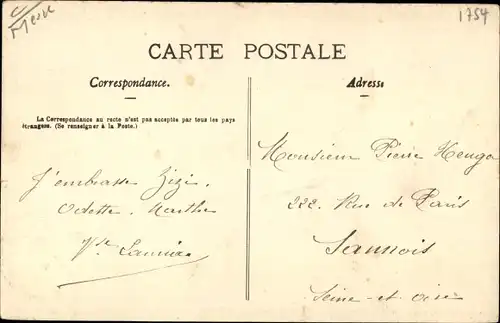 1754
CARTE POSTALE
Correspondance.
La Correspondance au recto n'est pas acceptée par tous les pays
étrangers. (Se renseigner à la Poste.)
J'embrasse Zizi.
Odette. Marthe
Adresse
Monsieur Pierre
222 Rue de Paris
Sannois
Seine-et-oise